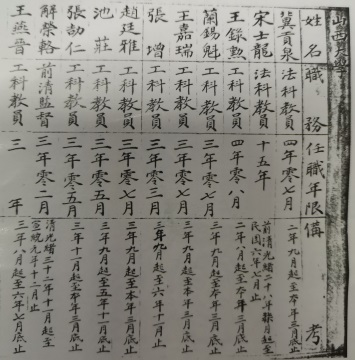 山西大學
姓名 職務 任職年限 備考
冀貢泉 法科教員 四年零七月 二年九月起至本年三月底止
宋士龍 法科教員 十五年 前清光緒二十八年柒月起至
民國六年七月止
王錄勲 工科教員 四年零八月 二年八月起至本年三月底止
蘭錫魁 工科教員 三年零七月 三年九月起至本年三月底止
王嘉瑞 工科教員 三年零七月 三年九月起至本年三月底止
張增 工科教員 三年零三月 三年九月起至六年十一月止
趙廷雅 工科教員 三年零七月 三年九月起至本年三月底止
池莊 工科教員 三年零五月 起至五年十二月止
張劼仁 工科教員 三年零五月 三年十一月起至本年三月底止
解榮輅 前清監督 三年零二月 清光緒三十二年十一月起至
宣統元年十二月止
王燕晉 工科教員 三年 三年八月起至六年七月止